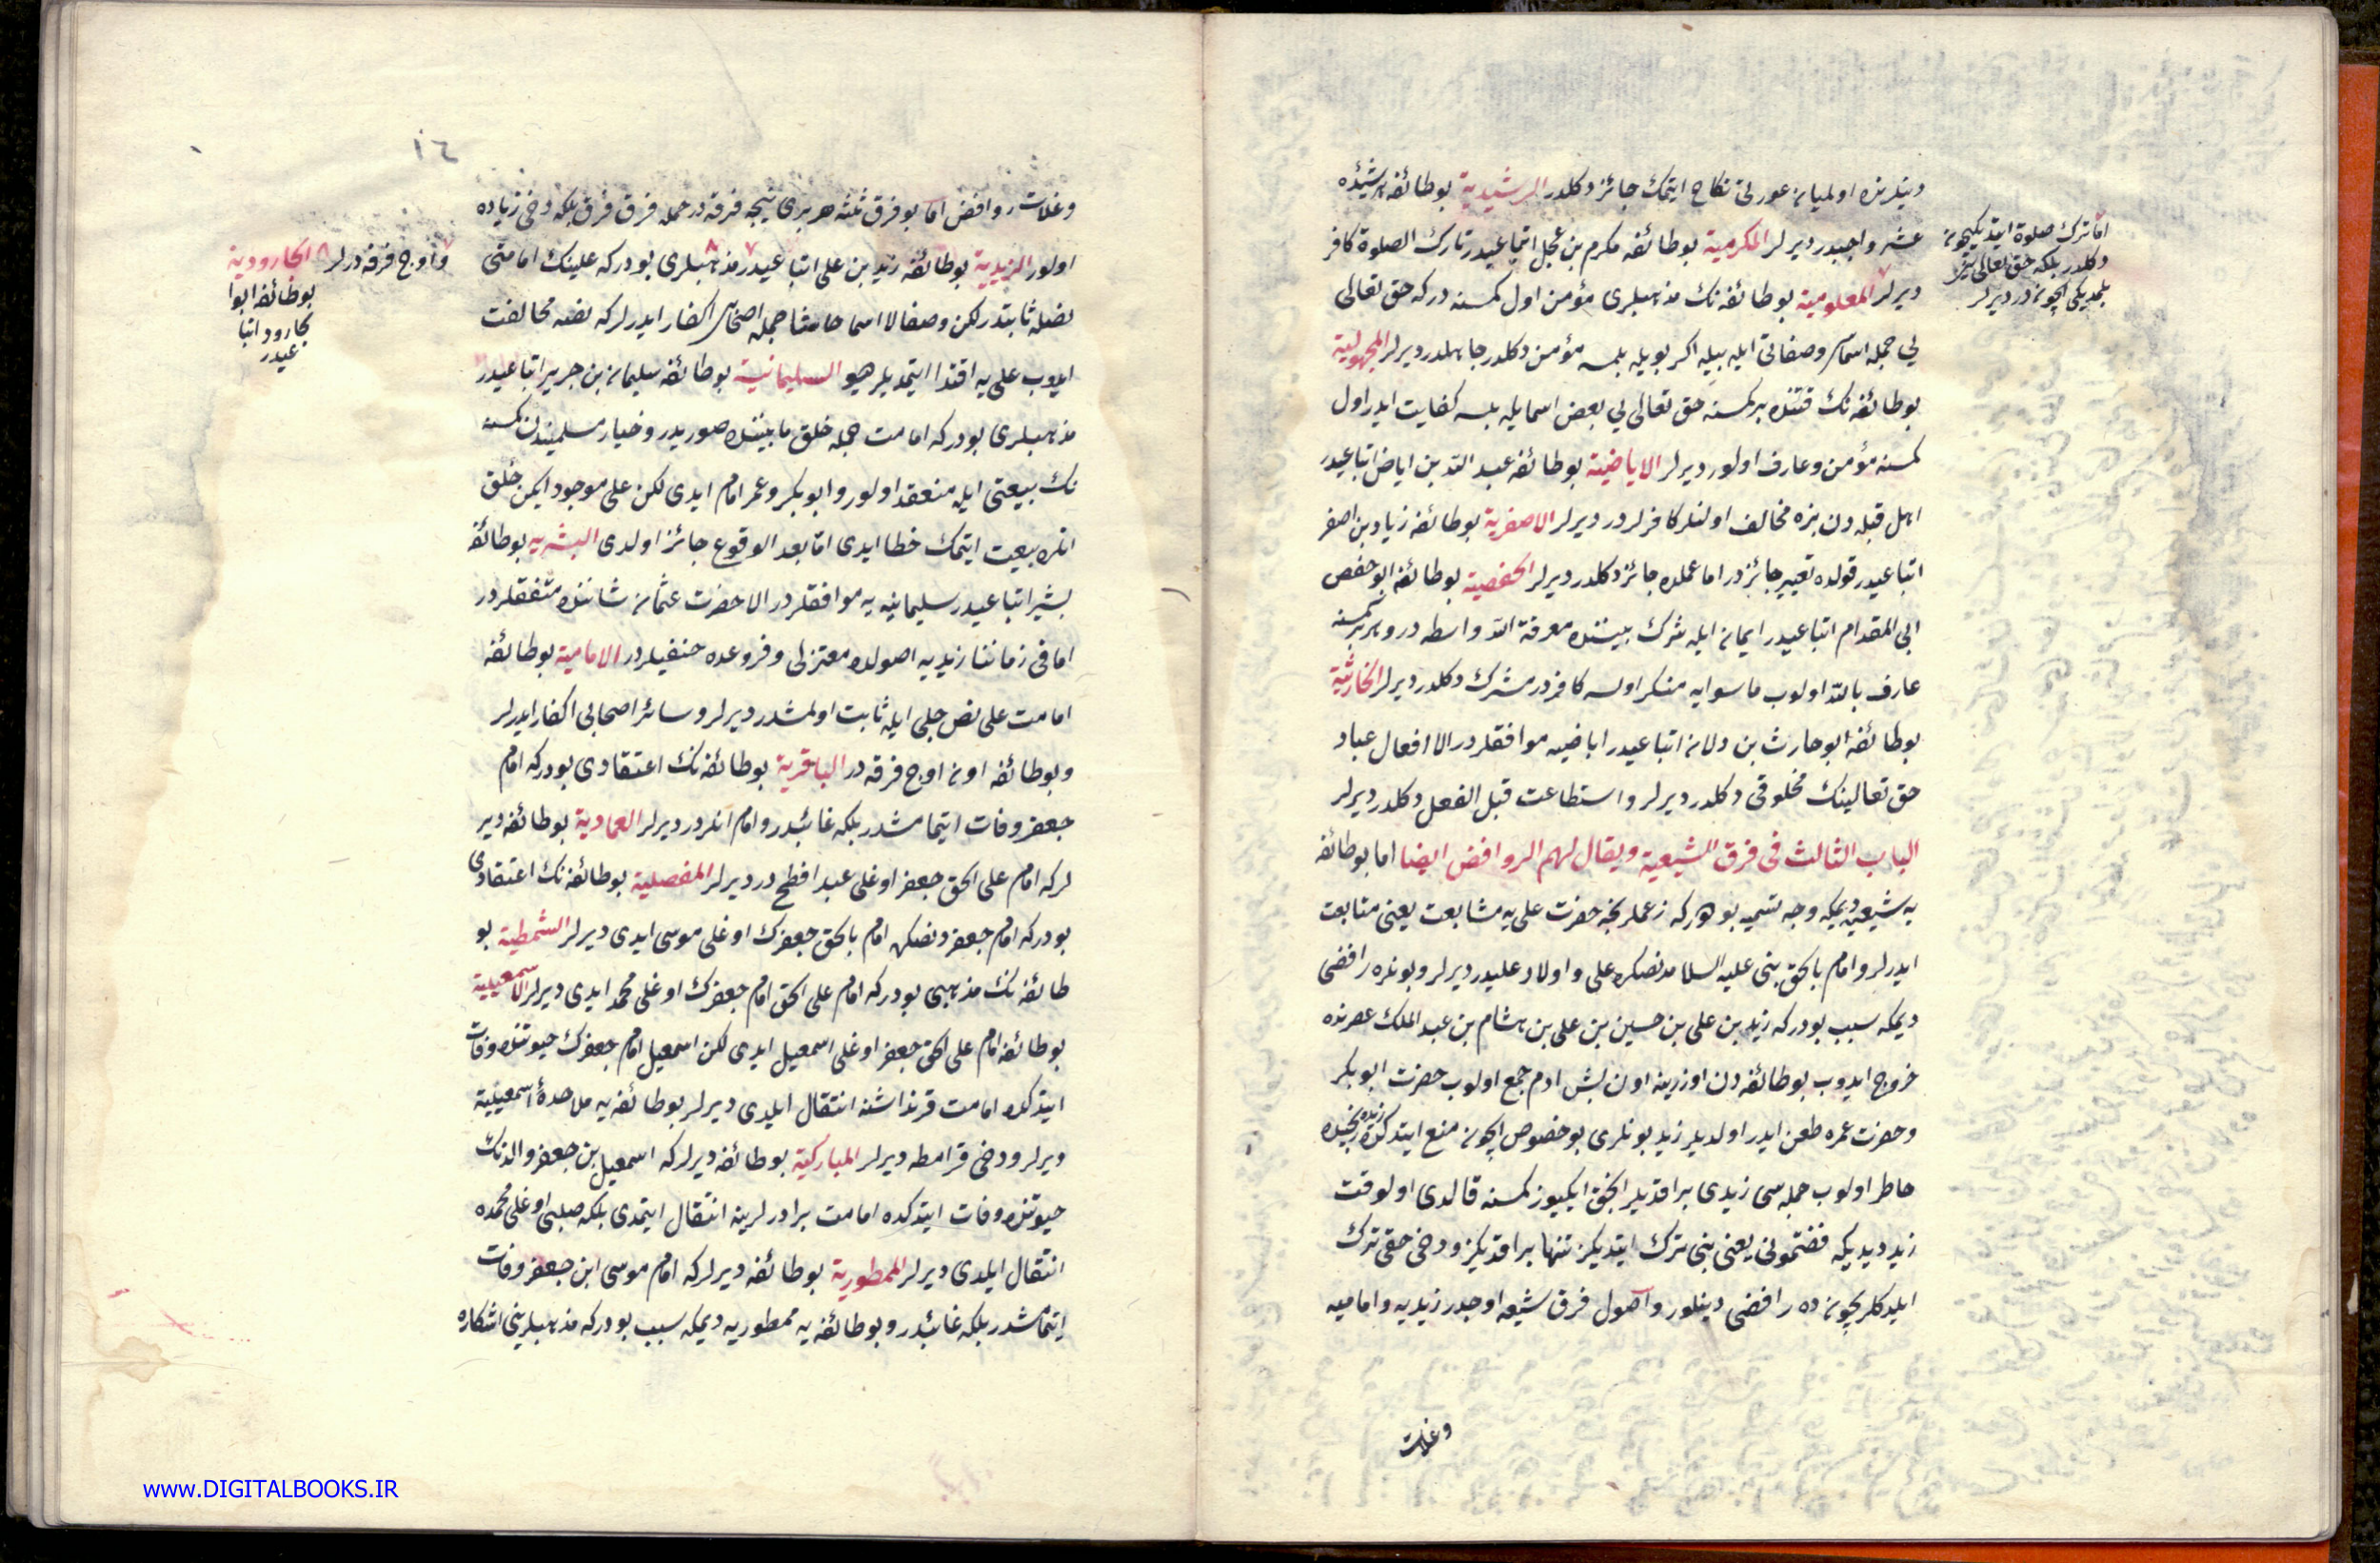 دینلرنده اولمیانه عورتی نکاح ایتمك جائز دکلدر الرشیدیة بوطائفه رشیده
عشر واجبدر دیرلر المکرمیة بوطائفه مکرم بن عجل اتباعیدر تارك الصلوة کافر
دیرلر المعلومیة بوطائفه نك مذهبلری مؤمن اول کمسنه درکه حق تعالی
یی جمله اسماسی وصفاتی ایله بیله اکر بویله بلمسه مؤمن دکلدر جاهلدر دیرلر المجهولیة
بوطائفه نك قتنده برکمسنه حق تعالی یی بعض اسما یله بلسه کفایت ایدر اول
کمسنه مؤمن وعارف اولور دیرلر الاباضیة بوطائفه عبد الله بن اباض اتباعیدر
اهل قبله دن بزه مخالف اولنلر کافرلردر دیرلر الاصفریة بوطائفه زیاد بن اصفر
اتباعیدر قولده تقیه جائزدر اما عملده جائز دکلدر دیرلر الحفصیة بوطائفه ابو حفص
ابی المقدام اتباعیدر ایمانه ایله شرك بیننده معرفة الله واسطه در وهر بر کمسنه
عارف بالله اولوب ماسوایه منکر اولسه کافردر مشرك دکلدر دیرلر الحارثیة
بوطائفه ابو حارث بن ولانه اتباعیدر اباضیه موافقلردر الا افعال عباد
حق تعالینك مخلوقی دکلدر دیرلر واستطاعت قبل الفعل دکلدر دیرلر
الباب الثالث فی فرق الشیعیة ویقال لهم الروافض ایضا اما بوطائفه
یه شیعیه دیمکه وجه تسمیه بو درکه زعملرنجه حضرت علی یه مشایعت یعنی متابعت
ایدرلر وامام بالحق نبی علیه السلامدنصکره علی واولاد علیدر دیرلر وبونلره رافضی
دیمکه سبب بودرکه زید بن علی بن حسین بن علی بن هشام بن عبد الملك عصرنده
خروج ایدوب بوطائفه دن اوزرینه اون بش ادم جمع اولوب حضرت ابوبکر
وحضرت عمره طعن ایدر اولدیلر زید بونلری بوخصوص ایچونه منع ایتدکده رنجیده
خاطر اولوب جمله سی زیدی براقدیلر انجق ایکیوز کمسنه قالدی اولوقت
زید دیدیکه فضتمونی یعنی بنی ترك ایتدیکز تنها براقدیکز ودخی حقی ترك
ایلدکلریچونه ده رافضی دینلور واصول فرق شیعه اوچدر زیدیه وامامیه
وغلات
اما ترك صلوة ایتدیکیچونه
دکلدر بلکه حق تعالی یی
بلمدیکی ایچوندر دیرلر
١٤
وغلات روافض اما بوفرق ثلثه هر بری نیجه فرقه در جمله فرق فرق بلکه دخی زیاده
اولور الزیدیة بوطائفه زید بن علی اتباعیدر مذهبلری بودرکه علینك امامتی
نصله ثابتدر لکن وصفا لا اسما حاشا جمله اصحابی اکفار ایدرلر که نصه مخالفت
ایدوب علی یه اقتدا ایتمدیلر هیو السلیمانیة بوطائفه سلیمانه بن جریر اتباعیدر
مذهبلری بودرکه امامت جمله خلق مابیننده صوریدر وخیار مسلمیندن کمسنه
نك بیعتی ایله منعقد اولور وابوبکر وعمر امام ایدی لکن علی موجود ایکن خلق
انلره بیعت ایتمك خطا ایدی اما بعد الوقوع جائز اولدی البشریه بوطائفه
بشیر اتباعیدر سلیمانیه یه موافقلردر الا حضرت عثمانه شاننده متفقلردر
اما فی زماننا زیدیه اصولده معتزلی وفروعده حنفیلردر الامامیة بوطائفه
امامت علی نص جلی ایله ثابت اولمشدر دیرلر وسائر اصحابی اکفار ایدرلر
وبوطائفه اونه اوچ فرقه در الباقریة بوطائفه نك اعتقادی بودرکه امام
جعفر وفات ایتمامشدر بلکه غائبدر وامام انلردر دیرلر العمادیة بوطائفه دیر
لرکه امام علی الحق جعفر اوغلی عبد افطح در دیرلر المفصلیة بوطائفه نك اعتقادی
بودرکه امام جعفر دنصکره امام بالحق جعفرك اوغلی موسی ایدی دیرلر الشمطیة بو
طائفه نك مذهبی بودرکه امام علی الحق امام جعفرك اوغلی محمد ایدی دیرلر الاسمعیلیة
بوطائفه امام علی الحق جعفر اوغلی اسمعیل ایدی لکن اسمعیل امام جعفرك حیوتنده وفات
ایتدکده امامت قرنداشنه انتقال ایلدی دیرلر بوطائفه یه ملاحدۀ اسمعیلیة
دیرلر ودخی قرامطه دیرلر المبارکیة بوطائفه دیرلرکه اسمعیل بن جعفر والدنك
حیوتنده وفات ایتدکده امامت برادرلرینه انتقال ایتمدی بلکه صلبی اوغلی محمده
انتقال ایلدی دیرلر الممطوریة بوطائفه دیرلرکه امام موسی ابن جعفر وفات
ایتمامشدر بلکه غائبدر وبوطائفه یه ممطوریه دیمکه سبب بودرکه مذهبلرینی اشکاره
واوچ فرقه درلر الجارودیة
بوطائفه ابوا
لجارود اتبا
عیدر
www.DIGITALBOOKS.IR